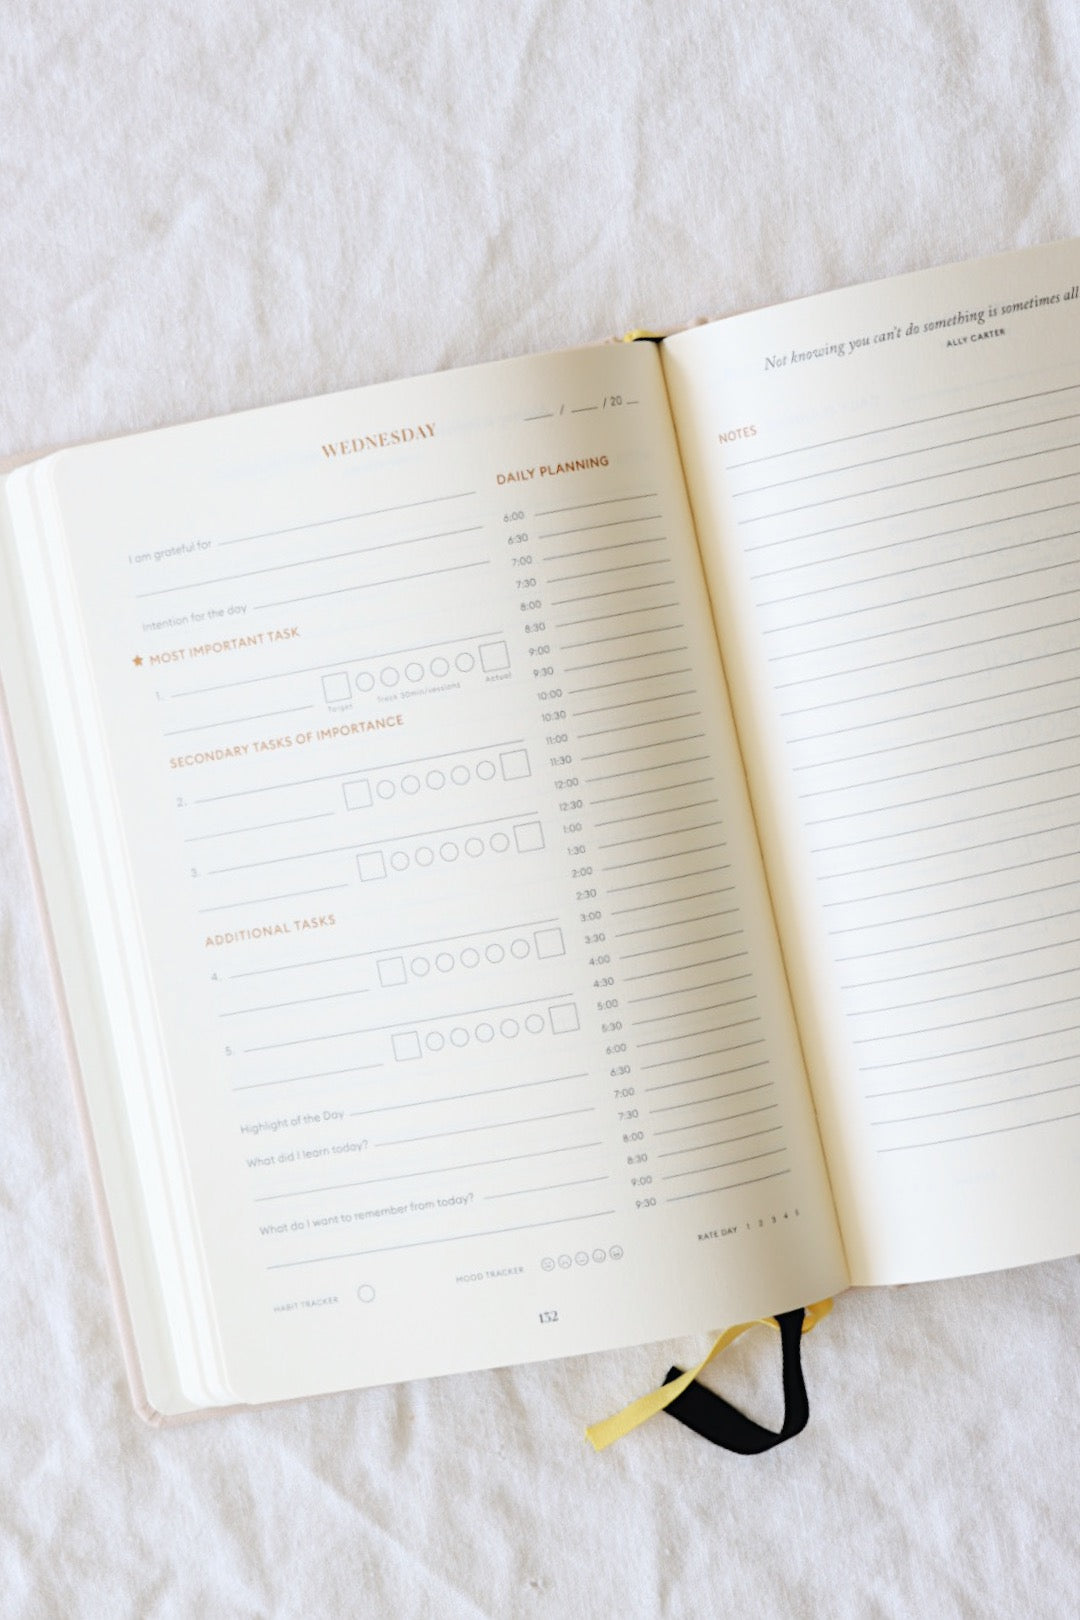 WEDNESDAY
__ / __ / 20 _
I am grateful for
Intention for the day
★ MOST IMPORTANT TASK
1.
Target
Track 30min/sessions
Actual
SECONDARY TASKS OF IMPORTANCE
2.
3.
ADDITIONAL TASKS
4.
5.
Highlight of the Day
What did I learn today?
What do I want to remember from today?
HABIT TRACKER
MOOD TRACKER
DAILY PLANNING
6:00
6:30
7:00
7:30
8:00
8:30
9:00
9:30
10:00
10:30
11:00
11:30
12:00
12:30
1:00
1:30
2:00
2:30
3:00
3:30
4:00
4:30
5:00
5:30
6:00
6:30
7:00
7:30
8:00
8:30
9:00
9:30
RATE DAY 1 2 3 4 5
152
Not knowing you can't do something is sometimes all
ALLY CARTER
NOTES